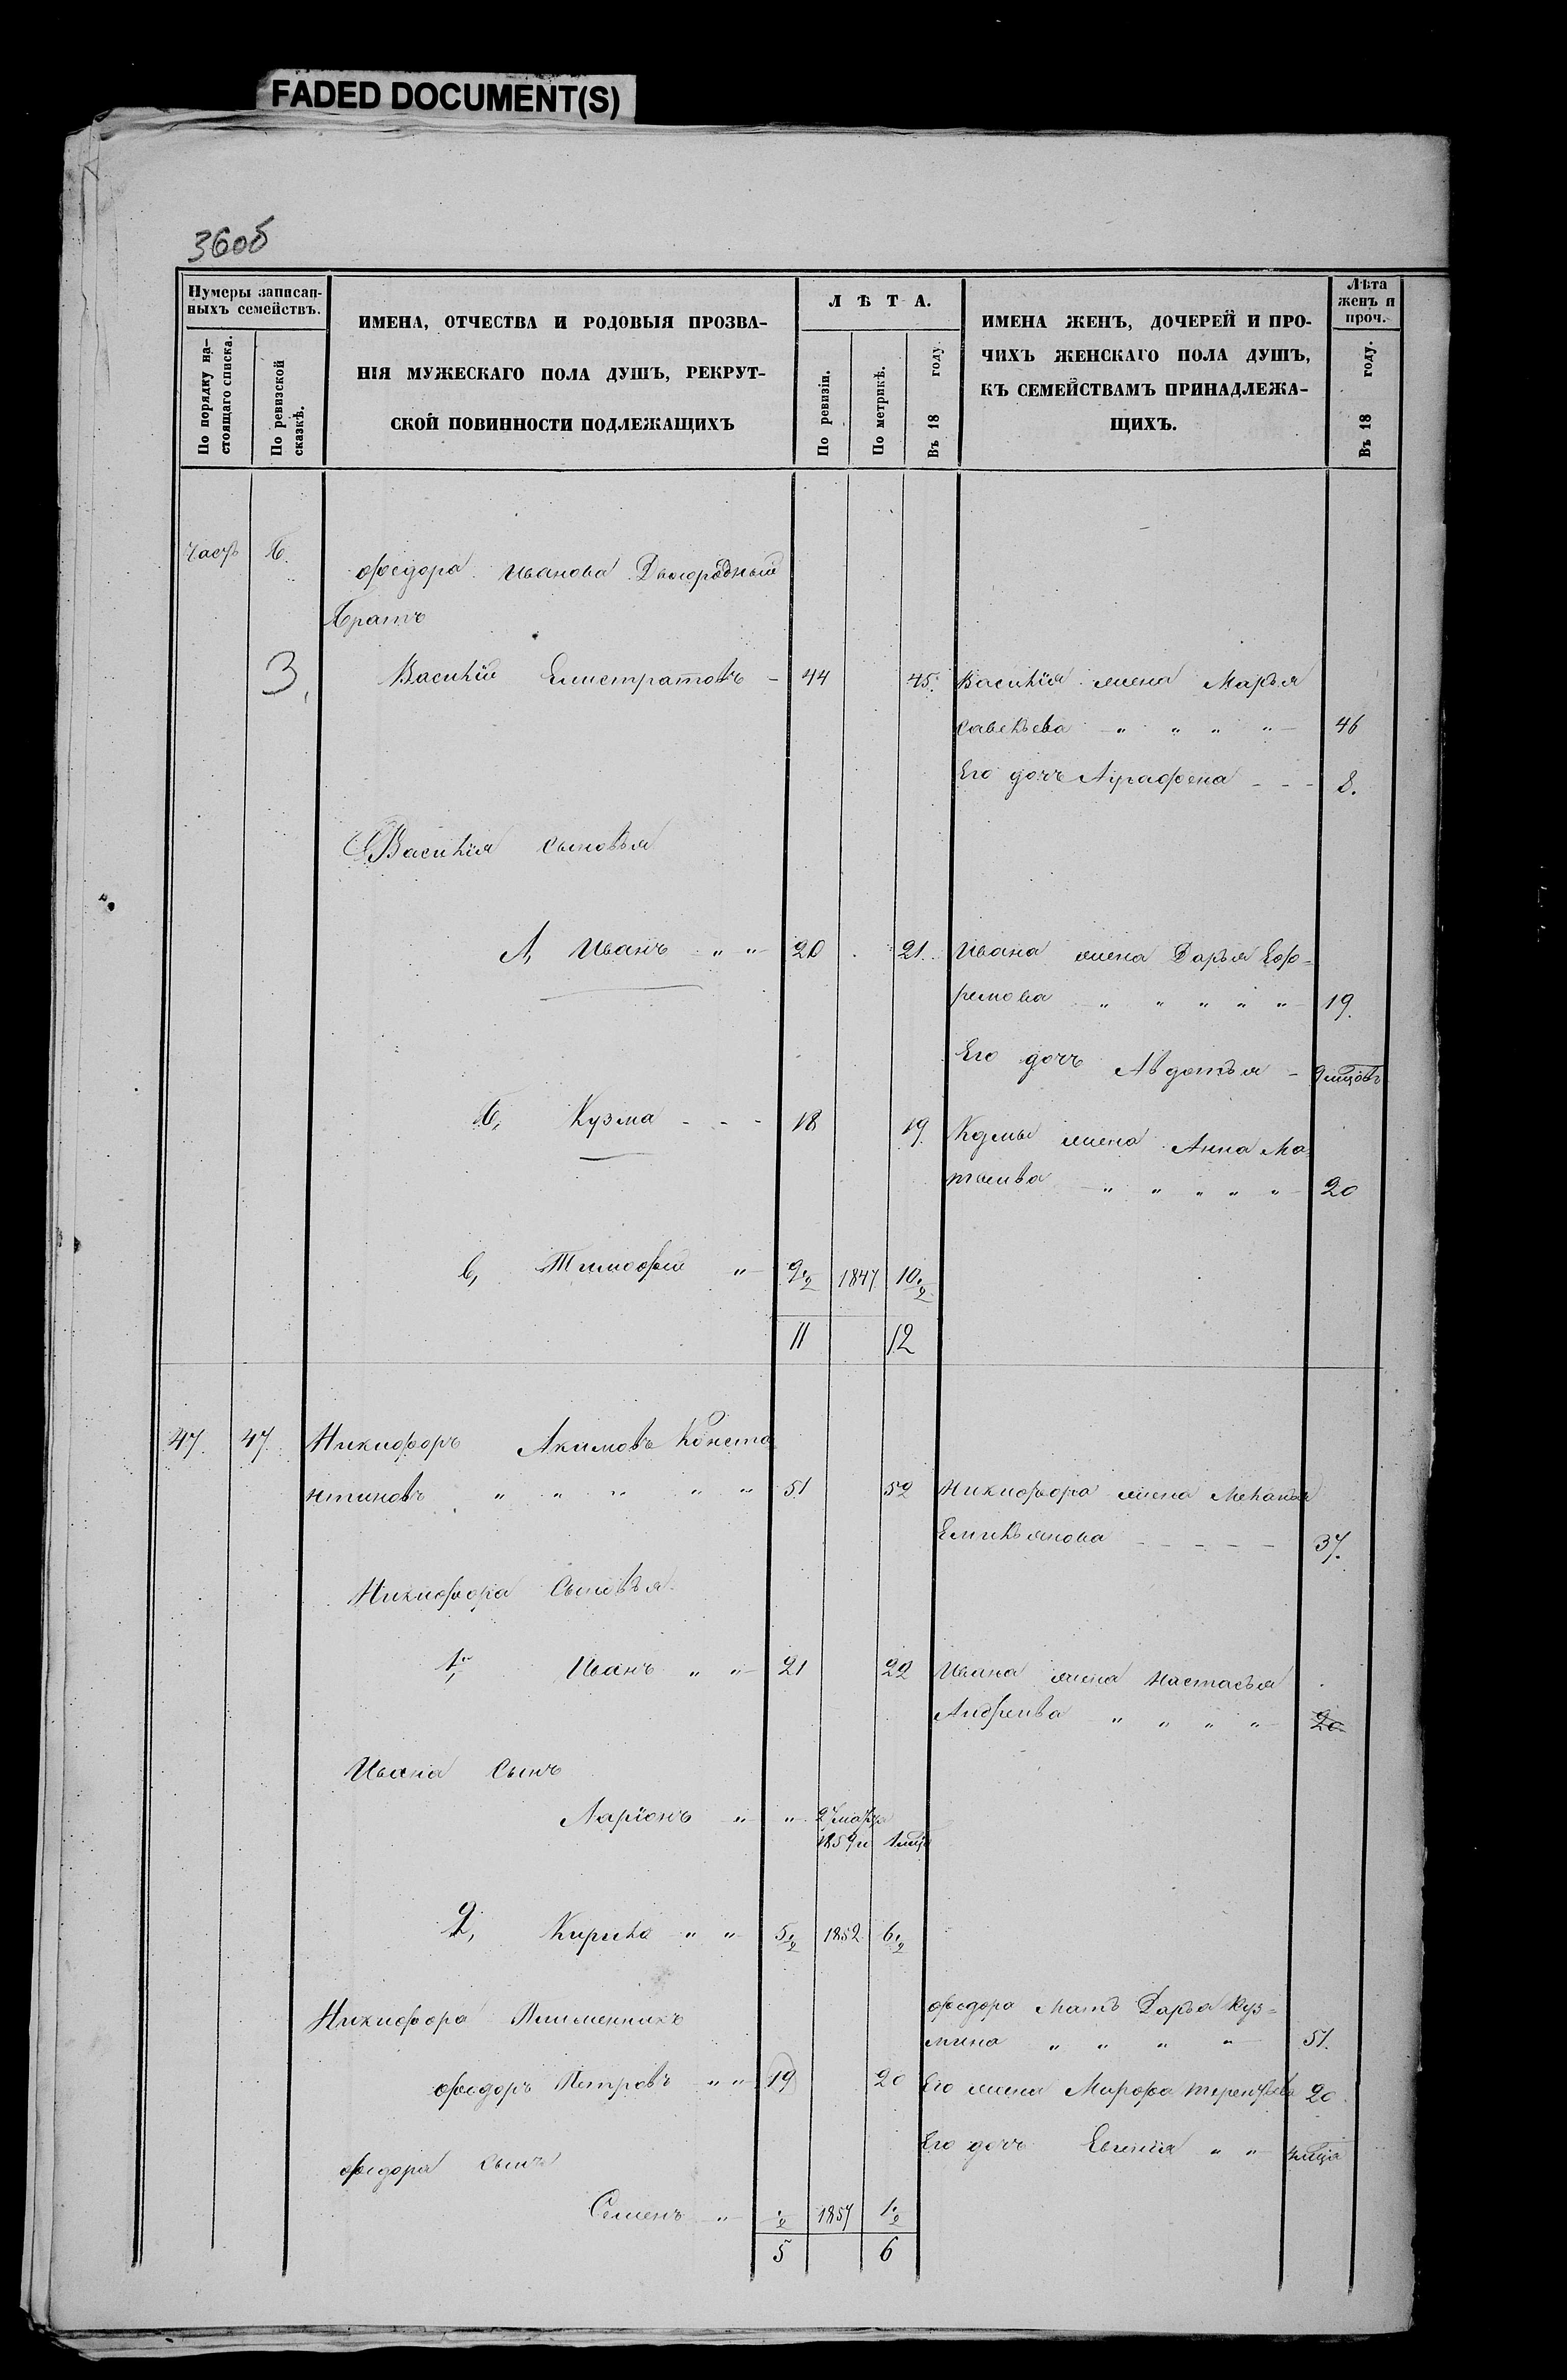 FADED DOCUMENT(S)
36об
Нумеры записан-
ныхъ семействъ.
По порядку на-
стоящаго списка.
По ревизской
сказкѣ.
ИМЕНА, ОТЧЕСТВА И РОДОВЫЯ ПРОЗВА-
НІЯ МУЖЕСКАГО ПОЛА ДУШЪ, РЕКРУТ-
СКОЙ ПОВИННОСТИ ПОДЛЕЖАЩИХЪ
ЛѢТА.
По ревизіи.
По метрикѣ.
Въ 18 году.
ИМЕНА ЖЕНЪ, ДОЧЕРЕЙ И ПРО-
ЧИХЪ ЖЕНСКАГО ПОЛА ДУШЪ,
КЪ СЕМЕЙСТВАМЪ ПРИНАДЛЕЖА-
ЩИХЪ.
Лѣта
женъ и
проч.
Въ 18 году.
Часть Б.
Федора Иванова Двоюродный
Братъ
3, Василій Елистратовъ - 44 45. Василія жена Марья
Савельева " " " " 46
Его дочь Аграфена - - - 8.
Василія сыновья
А, Иванъ " " 20 21. Ивана жена Дарья Еф-
ремова " " " " " 19.
Его дочь Авдотья - 9 мцовъ
Б, Кузма - - - 18 19. Козмы жена Анна Ма-
твеива " " " " " 20
в, Тимофей " 9½ 1847 10½
11 12
47. 47. Никифоръ Акимовъ Конста
нтиновъ " " " " " 51 52 Никифора жена Меланья
Емильянова - - - - - 37.
Никифора Сыновья
1, Иванъ " " 21 22 Ивана жена Настасья
Андреива " " " " 20
Ивана Сынъ
Ларіонъ " " 27 марта
1859 1 мцъ
2, Кирила " " 5½ 1852 6½
Никифора Племенникъ
Федора Мать Дарья Куз-
мина " " " " 51.
Федоръ Петровъ " " 19 20 Его жена Марфа Терентьева 20
Его дочь Евгенія " " мцъ
Федора сынъ
Семенъ " ½ 1857 1½
5 6